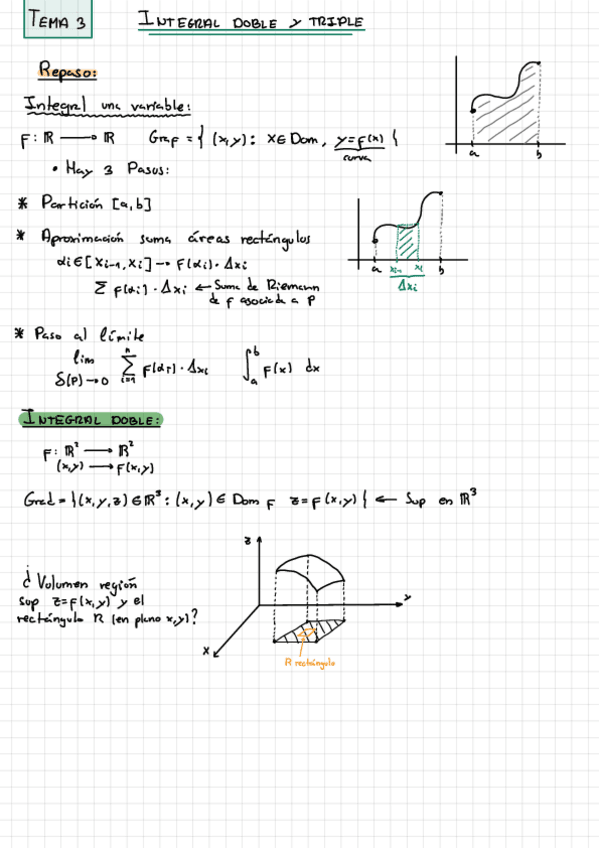 TEMA 3
INTEGRAL DOBLE Y TRIPLE
Repaso:
Integral una variable:
F: ℝ ⟶ ℝ Graf = { (x,y): x∈Dom, y=f(x) {
curva
a b
• Hay 3 Pasos:
* Partición [a,b]
* Aproximación suma áreas rectángulos
αi∈[xi-1, xi] → f(αi)·Δxi
Σ f(αi)·Δxi ← Suma de Riemann
de f asociada a P
a xi-1 xi b
Δxi
* Paso al límite
lim δ(P)→0 Σ i=1 n f(αi)·Δxi ∫ a b f(x) dx
INTEGRAL DOBLE:
F: ℝ² ⟶ ℝ²
(x,y) ⟶ F(x,y)
Graf = {(x,y,z)∈ℝ³: (x,y)∈ Dom F z=f(x,y) { ← Sup en ℝ³
¿ Volumen región
sup z=f(x,y) y el
rectángulo R (en plano x,y)?
z
y
x
R rectángulo